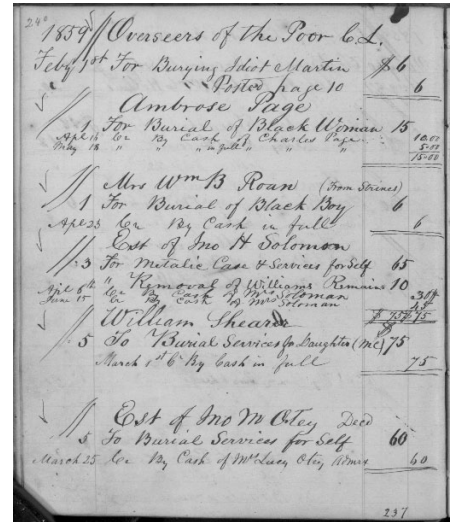 240
1859 Overseers of the Poor C.L.
Feby 1st For Burying Idiot Martin $ 6
Posted page 10 6
Ambrose Page
1 For Burial of Black Woman 15
Apl 15 Cr By Cash of Charles Page 10.00
May 18 " " " in full " 5.00
15.00
Mrs Wm B Roan (From Strines)
1 For Burial of Black Boy 6
Apl 23 Cr By Cash in full 6
Est of Jno H Solomon
3 For Metalic Case & Services for Self 65
" Removal of Williams Remains 10
Apl 6th Cr By Cash of Mrs Solomon 30
June 15 Cr By Cash of Mrs Solomon 45
$ 75 75
William Shearer
5 To Burial Services for Daughter (MC) 75
March 1st Cr By Cash in full 75
Est of Jno M Otey Decd
5 To Burial Services for Self 60
March 25 Cr By Cash of Mrs Lucy Otey Admrx 60
237